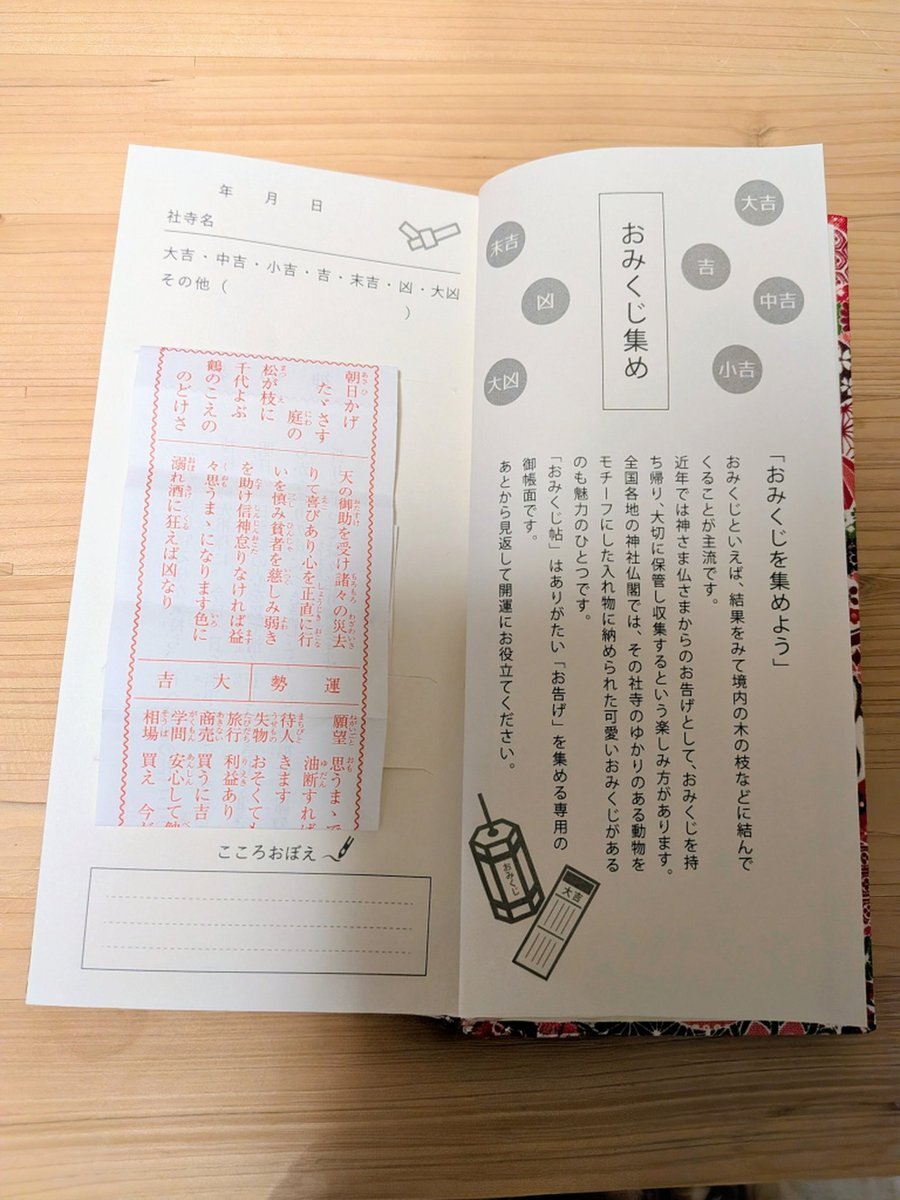 おみくじ集め
大吉
吉
中吉
小吉
末吉
凶
大凶
「おみくじを集めよう」
おみくじといえば、結果をみて境内の木の枝などに結んで
くることが主流です。
近年では神さま仏さまからのお告げとして、おみくじを持
ち帰り、大切に保管し収集するという楽しみ方があります。
全国各地の神社仏閣では、その社寺のゆかりのある動物を
モチーフにした入れ物に納められた可愛いおみくじがある
のも魅力のひとつです。
「おみくじ帖」はありがたい「お告げ」を集める専用の
御帳面です。
あとから見返して開運にお役立てください。
おみくじ
大吉
年 月 日
社寺名
大吉・中吉・小吉・吉・末吉・凶・大凶
その他( )
朝日かげ
たゞさす
庭の
松が枝に
千代よぶ
鶴のこえの
のどけさ
天の御助を受け諸々の災去
りて喜びあり心を正直に行
いを慎み貧者を慈しみ弱き
を助け信神怠りなければ益
々思うまゝになります色に
溺れ酒に狂えば凶なり
運勢 大吉
願望 思うまゝで
油断すれば
待人 きます
失物 おそくても
旅行 利益あり
商売 買うに吉
学問 安心して
相場 買え 今
こころおぼえ